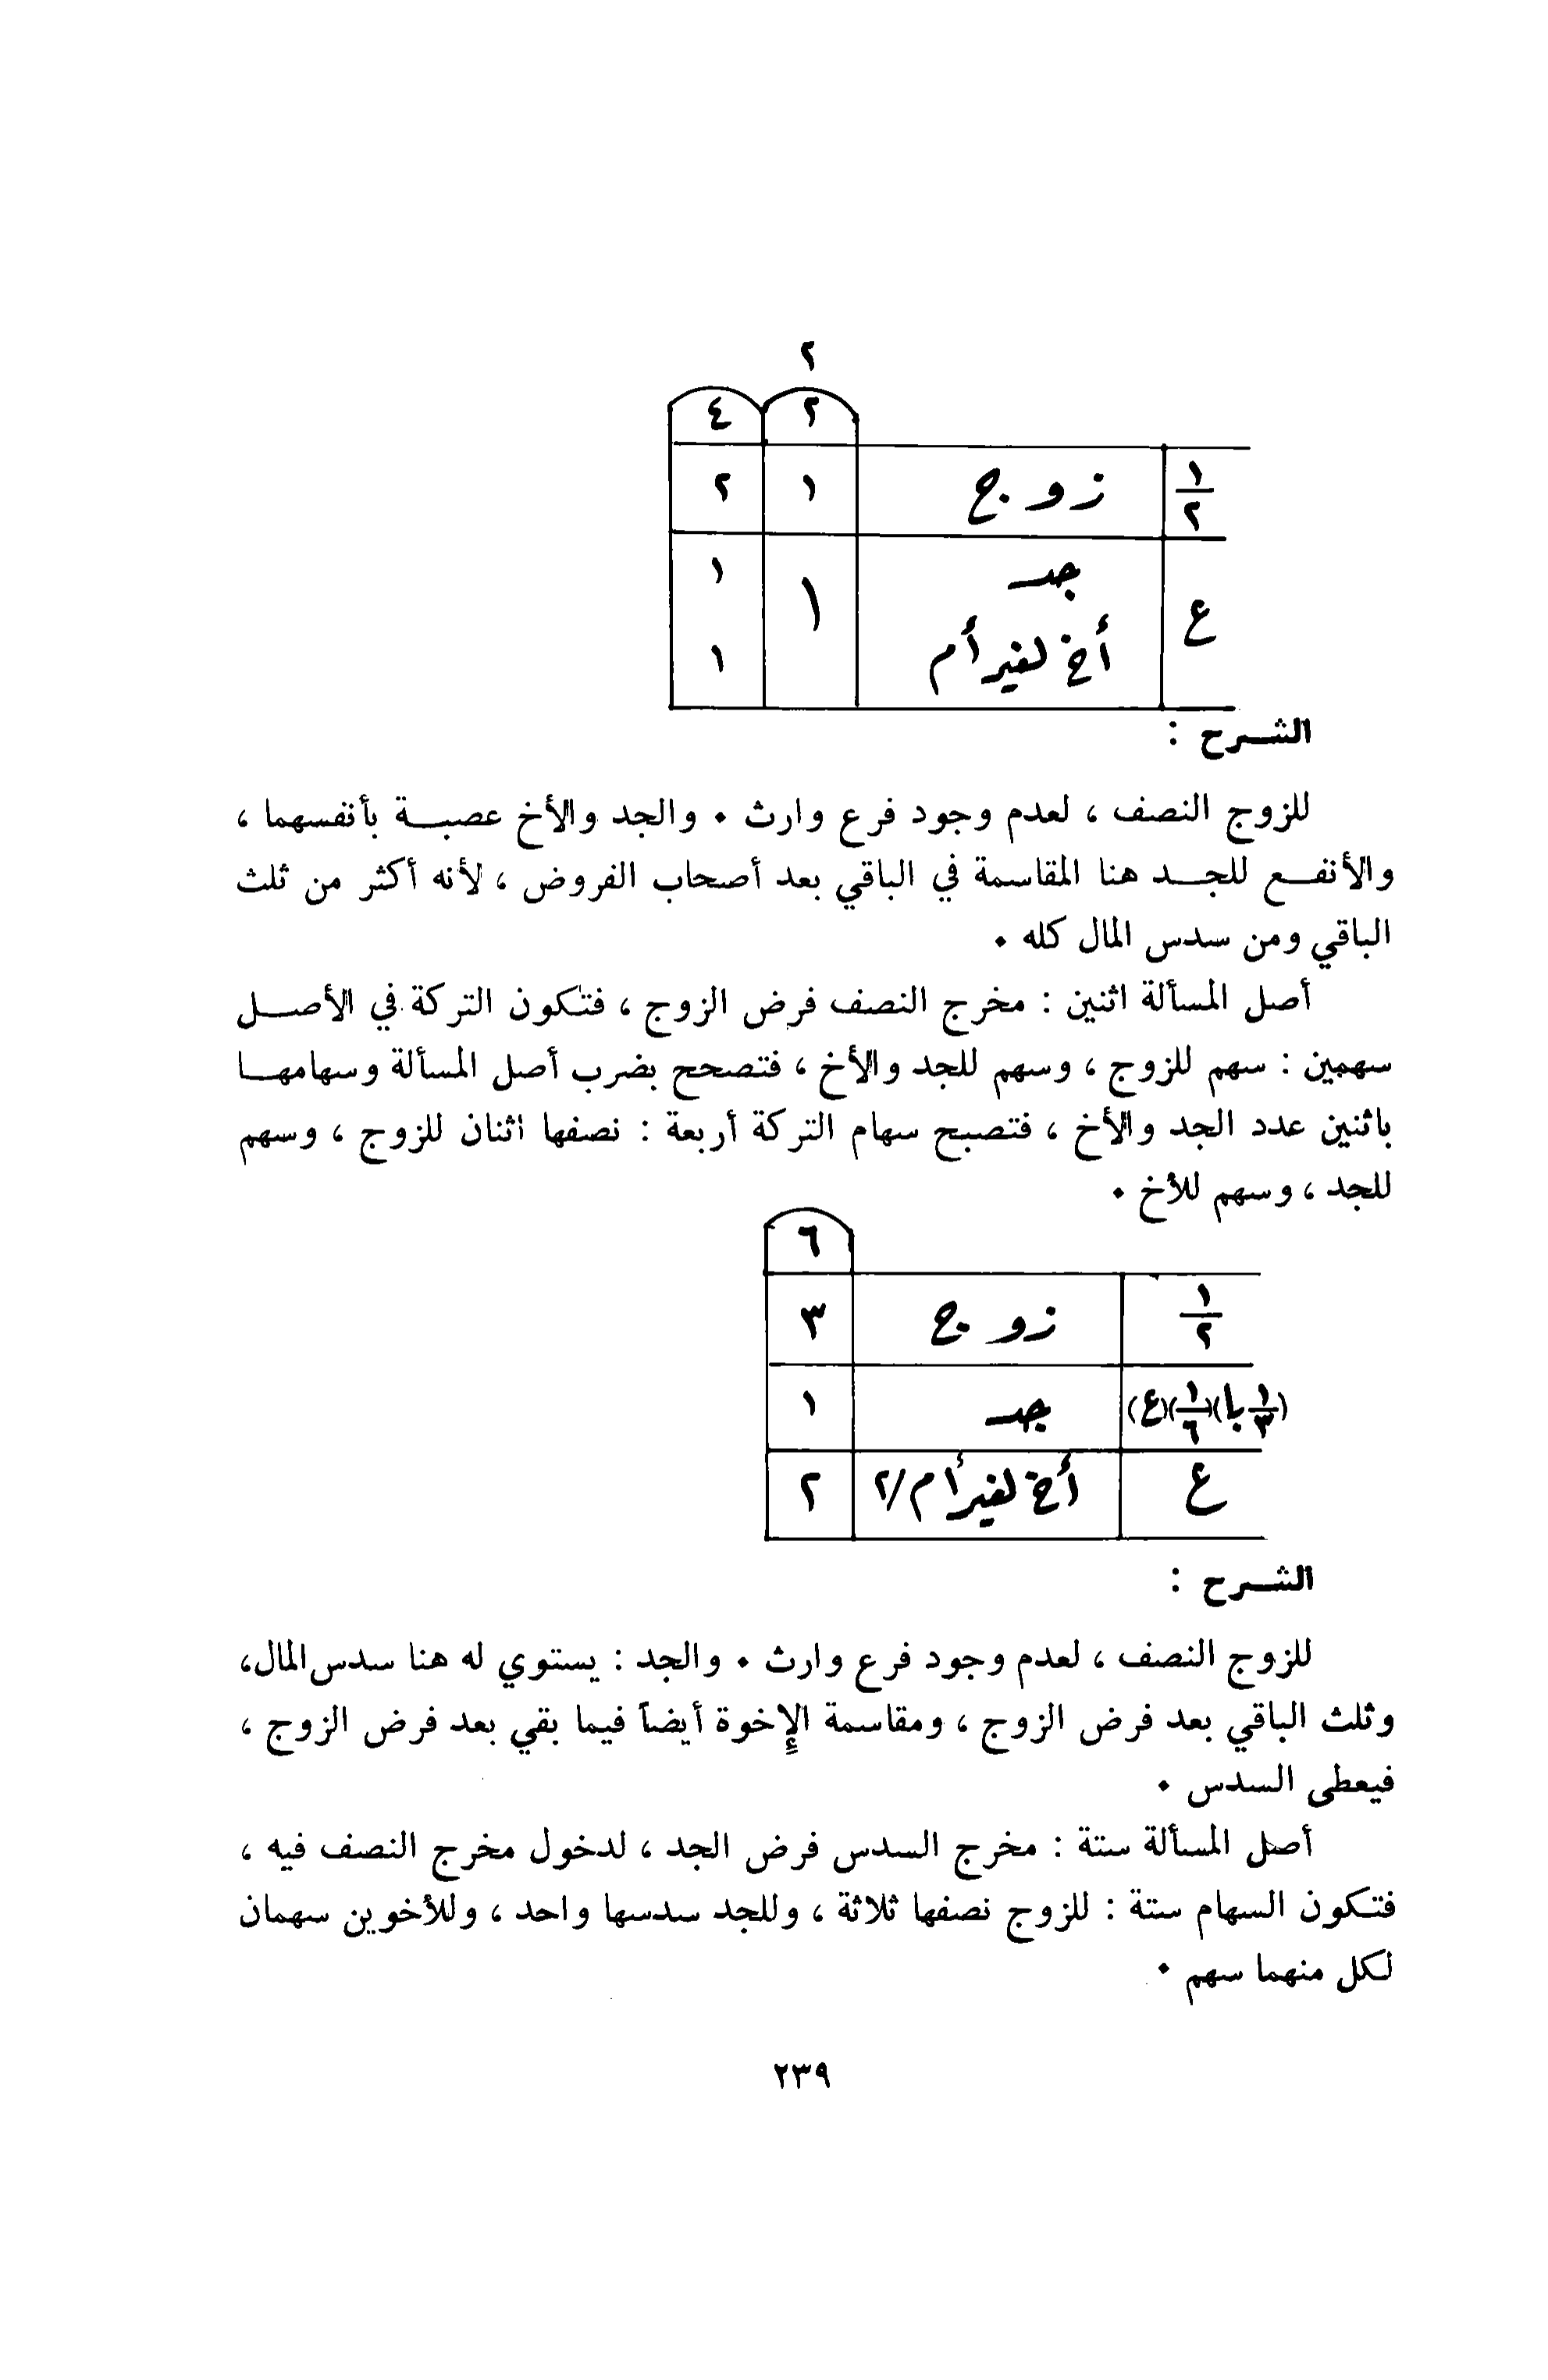 ٢
٢ ٤
١/٢ زوج ١ ٢
جد ١
ع ١
أخ لغير أم ١
الشـرح :
للزوج النصف ، لعدم وجود فرع وارث ٠ والجد والأخ عصبـة بأنفسهما ،
والأنفـع للجـد هنا المقاسمة في الباقي بعد أصحاب الفروض ، لأنه أكثر من ثلث
الباقي ومن سدس المال كله ٠
أصل المسألة اثنين : مخرج النصف فرض الزوج ، فتكون التركة في الأصـل
سهمين : سهم للزوج ، وسهم للجد والأخ ، فتصحح بضرب أصل المسألة وسهامهـا
باثنين عدد الجد والأخ ، فتصبح سهام التركة أربعة : نصفها اثنان للزوج ، وسهم
للجد ، وسهم للأخ ٠
٦
١/٢ زوج ٣
(١/٣ با)(١/٦)(ع) جد ١
ع أخ لغير أم/٢ ٢
الشـرح :
للزوج النصف ، لعدم وجود فرع وارث ٠ والجد : يستوي له هنا سدس المال،
وثلث الباقي بعد فرض الزوج ، ومقاسمة الإخوة أيضاً فيما بقي بعد فرض الزوج ،
فيعطى السدس ٠
أصل المسألة ستة : مخرج السدس فرض الجد ، لدخول مخرج النصف فيه ،
فتكون السهام ستة : للزوج نصفها ثلاثة ، وللجد سدسها واحد ، وللأخوين سهمان
لكل منهما سهم ٠
٢٣٩